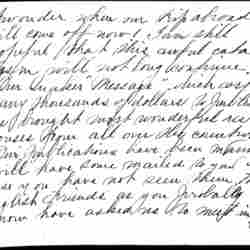 wonder when our trip abroad
ill come off now! I am still
opeful that this awful catas
will not long continue.
"Message" which cost
any thousands of dollars to publish
brought most wonderful res
onses from all over the country
publications have been
will have some mailed to you
as you have not seen them.
glish friends as you probably
now have asked me to